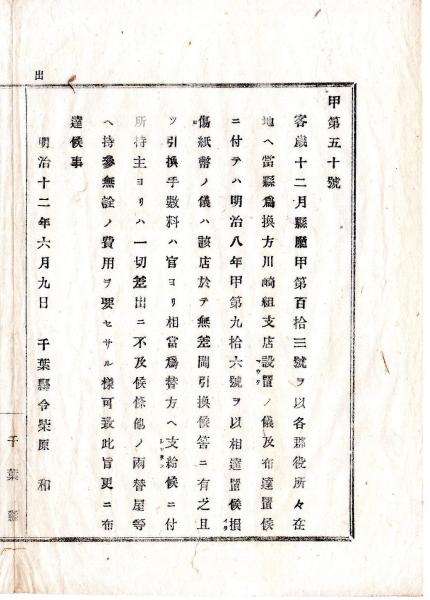 甲第五十號
客歲十二月縣廳甲第百拾三號ヲ以各郡役所々在
地ヘ當縣爲換方川崎組支店設置ノ儀及布達置候
ニ付テハ明治八年甲第九拾六號ヲ以相達置候損
傷紙幣ノ儀ハ該店於テ無差閊引換候筈ニ有之且
ツ引換手數料ハ官ヨリ相當爲替方ヘ支給候ニ付
所持主ヨリハ一切差出ニ不及候條他ノ兩替屋等
ヘ持參無詮ノ費用ヲ要セサル樣可致此旨更ニ布
達候事
明治十二年六月九日 千葉縣令柴原 和
千葉縣
出